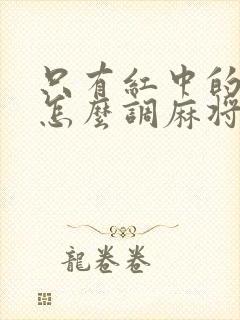 只有紅中的
怎麼調麻將
龍卷卷